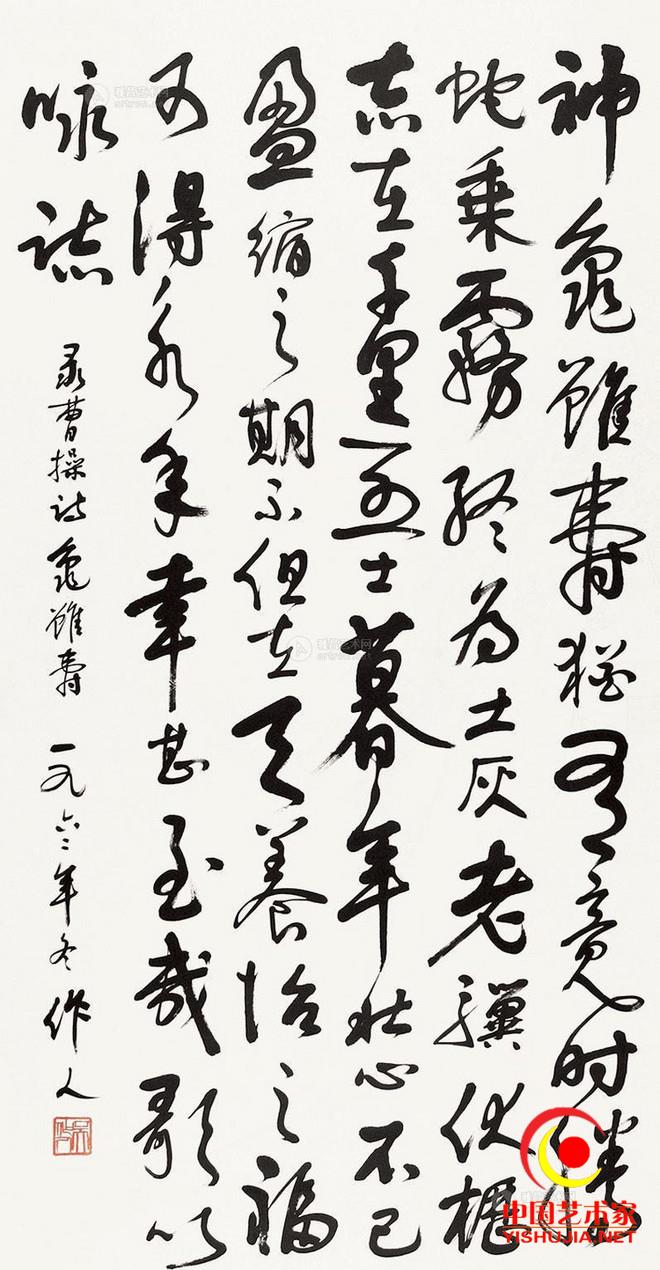 神龜雖壽猶有竟时
蛇乘霧終为土灰老驥伏櫪
志在千里烈士暮年壯心不已
盈縮之期不但在天養怡之福
可得永年幸甚至哉歌以
詠誌
录曹操诗龜雖壽 一九六二年冬 作人
中国艺术家
YISHUJIA.NET
雅昌艺术网
artron.net